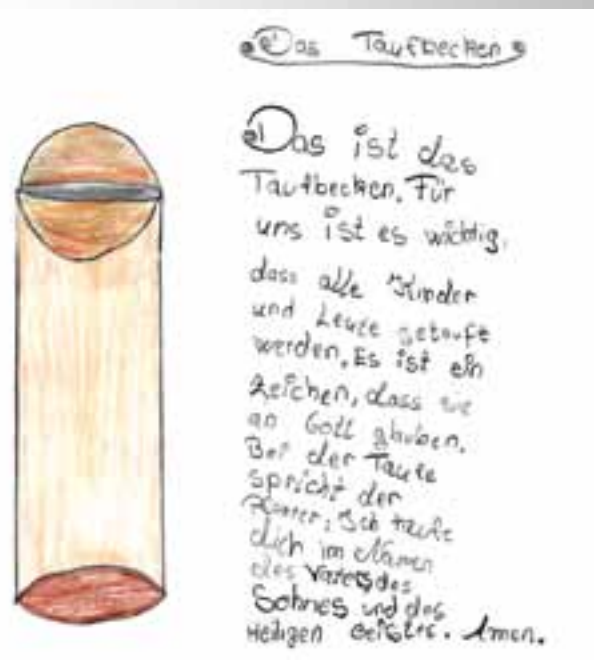 Das Taufbecken
Das ist das
Taufbecken. Für
uns ist es wichtig,
dass alle Kinder
und Leute getauft
werden. Es ist ein
Zeichen, dass sie
an Gott glauben.
Bei der Taufe
spricht der
Pfarrer: Ich taufe
dich im Namen
des Vaters des
Sohnes und des
Heiligen Geistes. Amen.